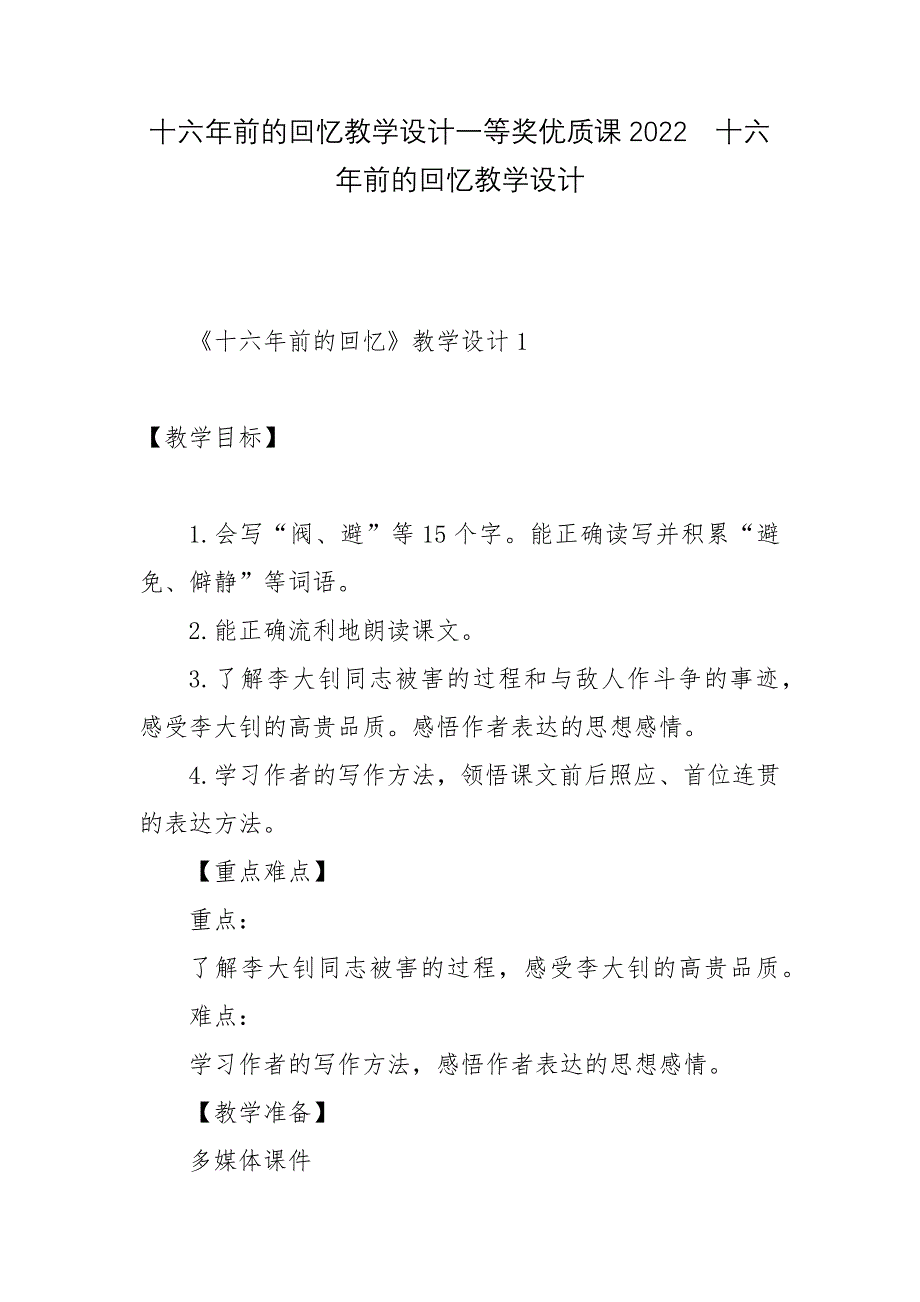 十六年前的回忆教学设计一等奖优质课2022 十六
年前的回忆教学设计
《十六年前的回忆》教学设计1
【教学目标】
1.会写“阀、避”等15个字。能正确读写并积累“避
免、僻静”等词语。
2.能正确流利地朗读课文。
3.了解李大钊同志被害的过程和与敌人作斗争的事迹，
感受李大钊的高贵品质。感悟作者表达的思想感情。
4.学习作者的写作方法，领悟课文前后照应、首位连贯
的表达方法。
【重点难点】
重点：
了解李大钊同志被害的过程，感受李大钊的高贵品质。
难点：
学习作者的写作方法，感悟作者表达的思想感情。
【教学准备】
多媒体课件